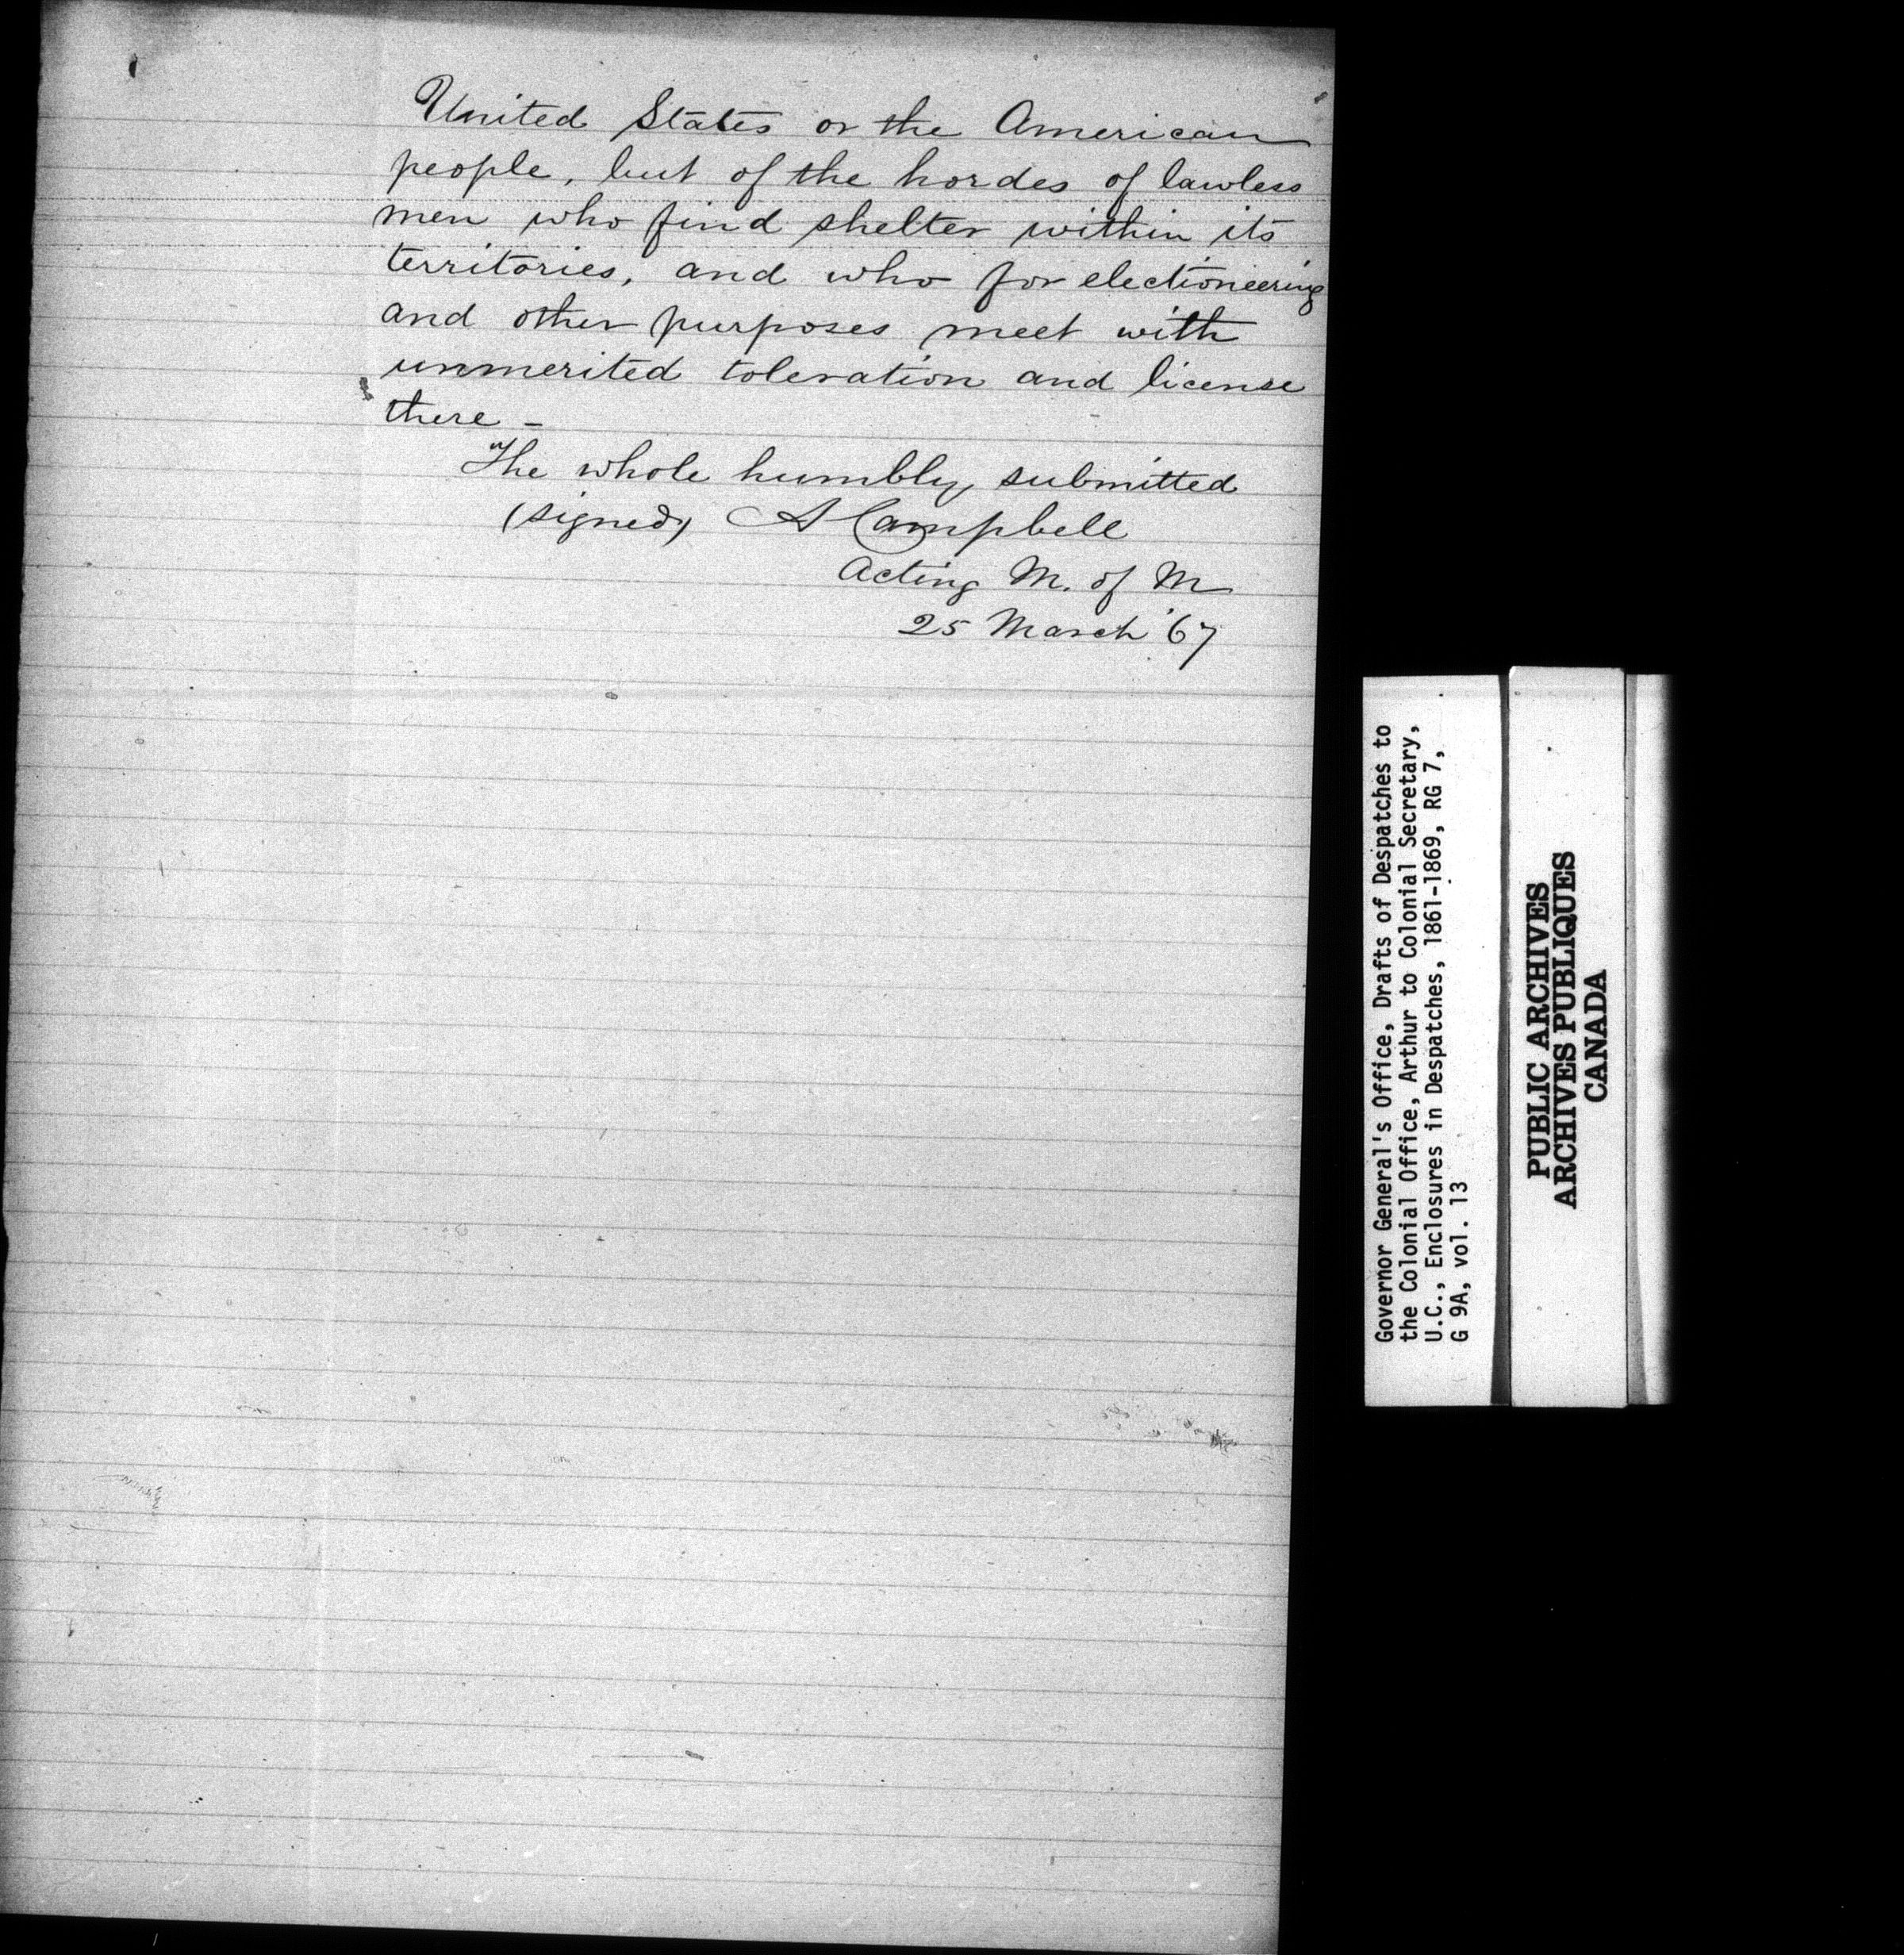 United States or the American
people, but of the hordes of lawless
men who find shelter within its
territories, and who for electioneering
and other purposes meet with
unmerited toleration and license
there -
The whole humbly submitted
(signed) A Campbell
Acting M. of M
25 March '67
Governor General's Office, Drafts of Despatches to
the Colonial Office, Arthur to Colonial Secretary,
U.C., Enclosures in Despatches, 1861-1869, RG 7,
G 9A, vol. 13
PUBLIC ARCHIVES
ARCHIVES PUBLIQUES
CANADA